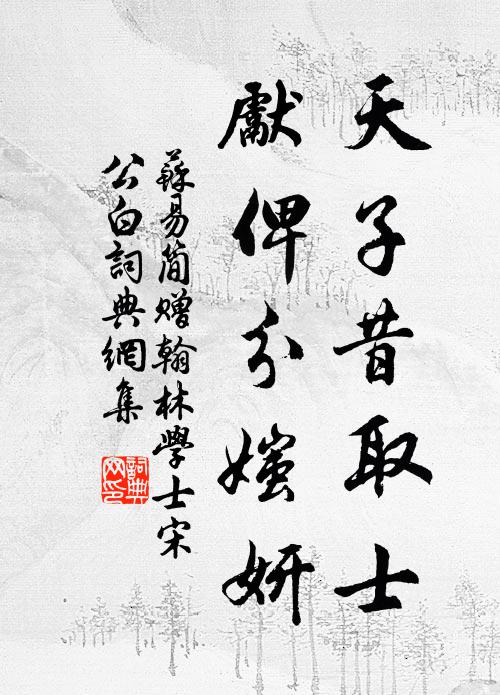 天子昔取士
獻俾分媸妍
蘇易简贈翰林學士宋
公白詞典網集
詞典
网印